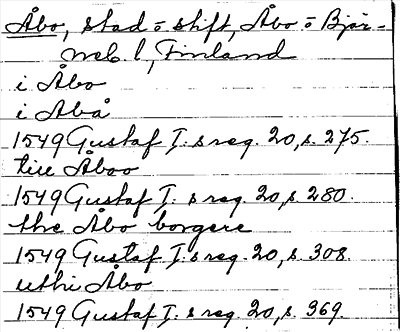 Åbo, stad o stift, Åbo o Bjär-
neb. l, Finland
i Åbo
i Abå
1549 Gustaf I:s reg. 20, s. 275.
till Åboo
1549 Gustaf I:s reg. 20, s. 280.
the Åbo borgere
1549 Gustaf I:s reg. 20, s. 308.
uthi Åbo
1549 Gustaf I:s reg. 20, s. 369.